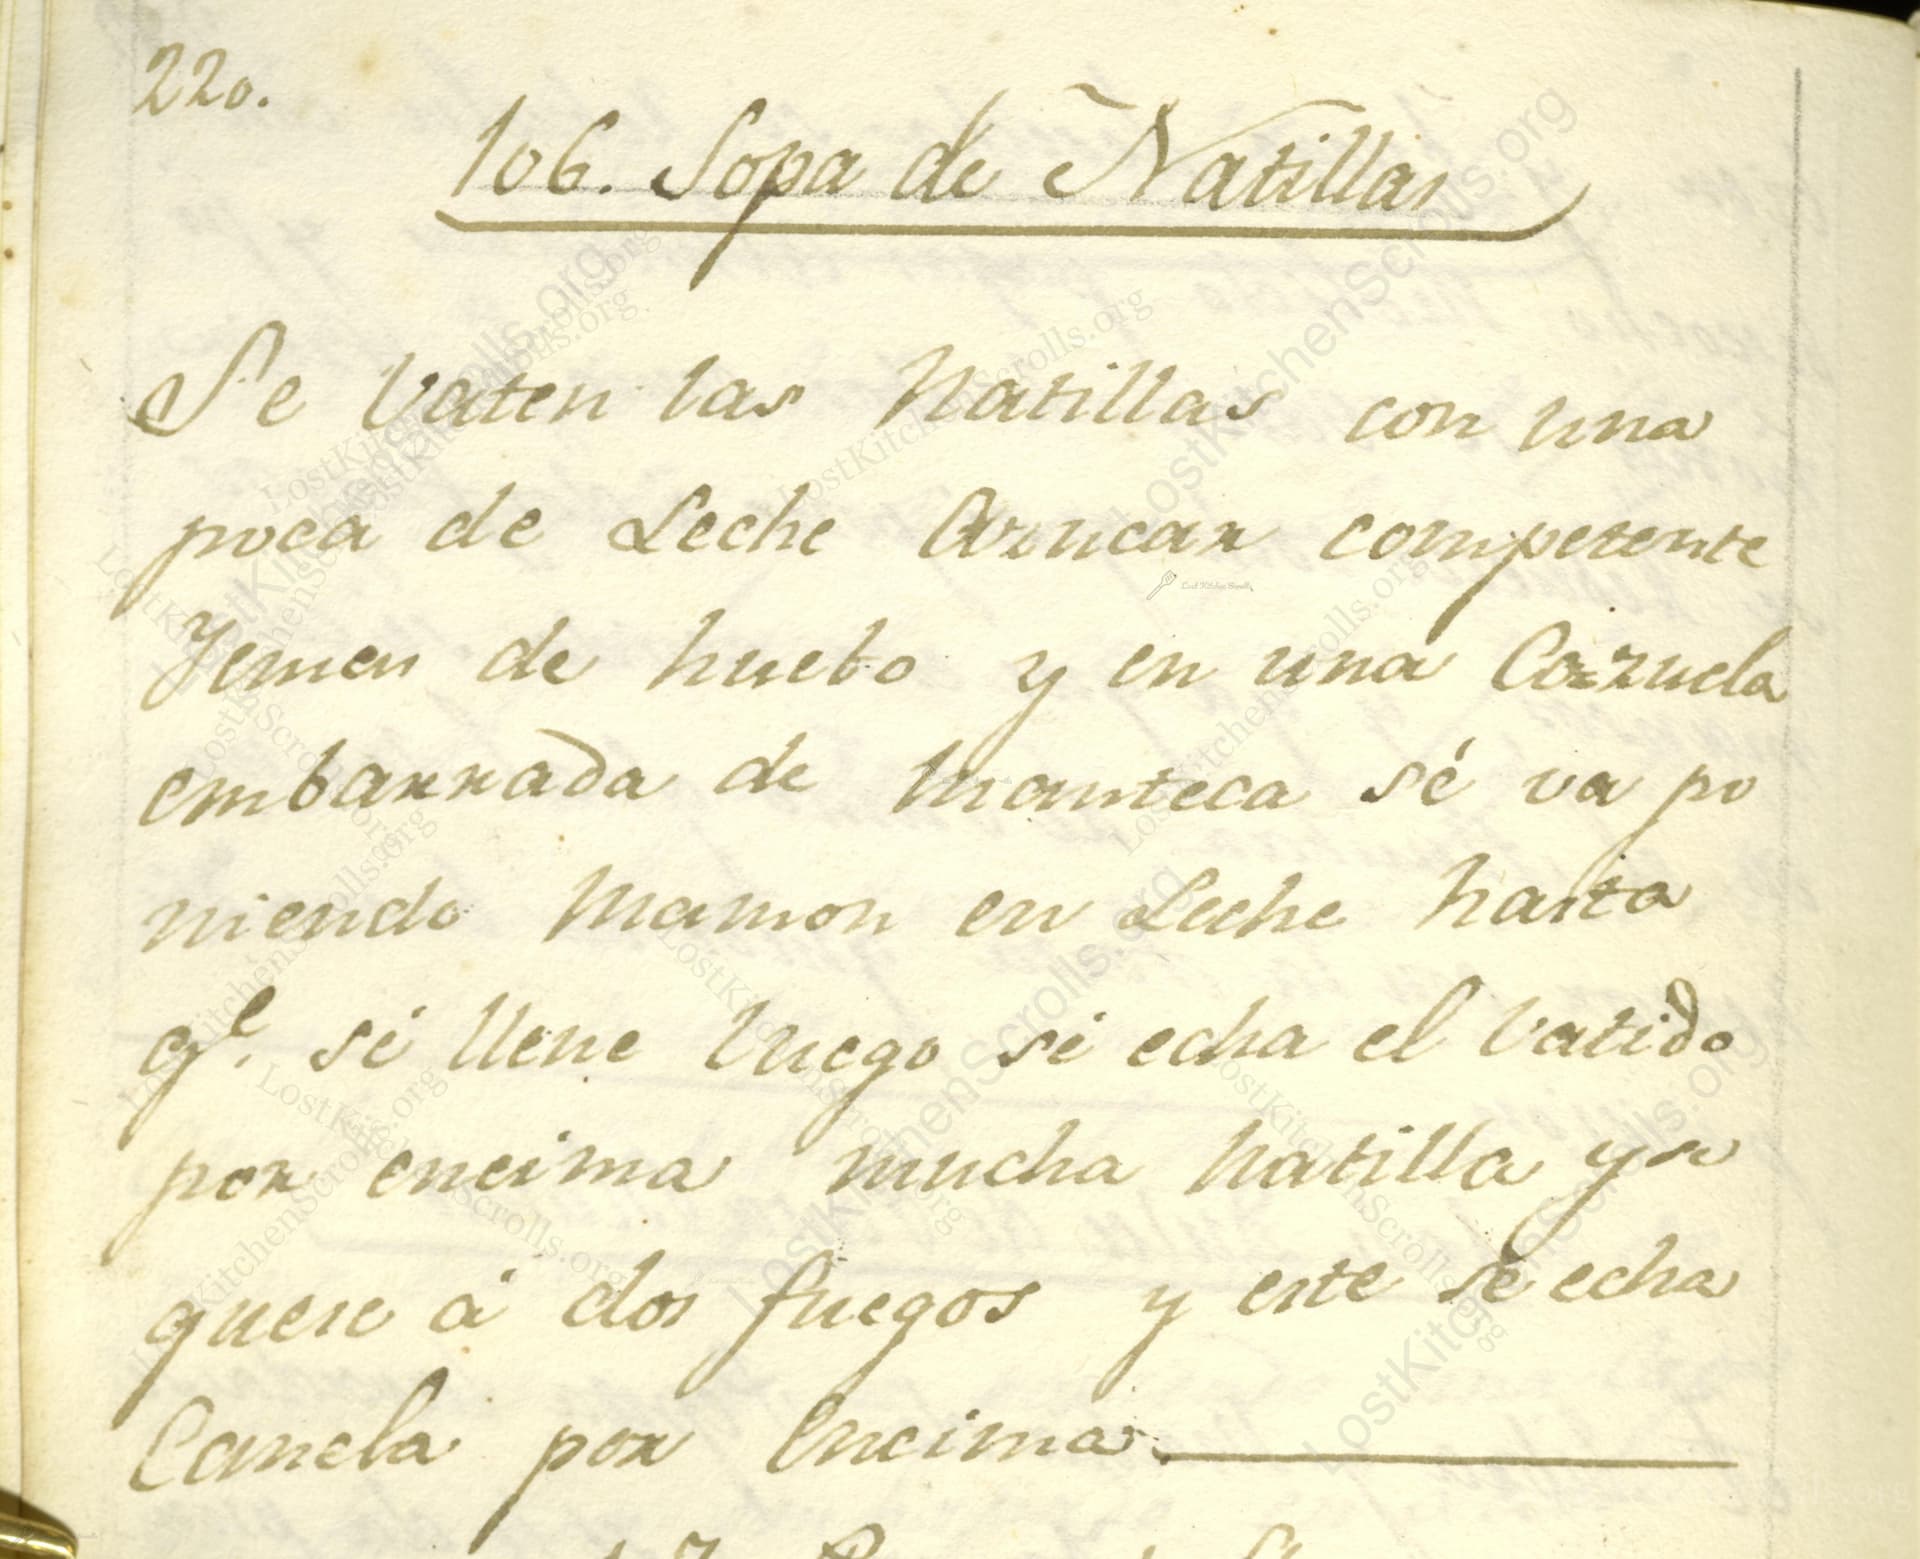 220.
106. Sopa de Natillas
Se vaten las Natillas con una
poca de Leche Azucar competente
Yemas de huebo y en una Cazuela
embarrada de manteca sé va po
niendo Mamon en Leche hasta
qe. sé llene luego sé echa el vatido
por encima mucha Natilla y se
quese á dos fuegos y este se echa
Canela por encima.